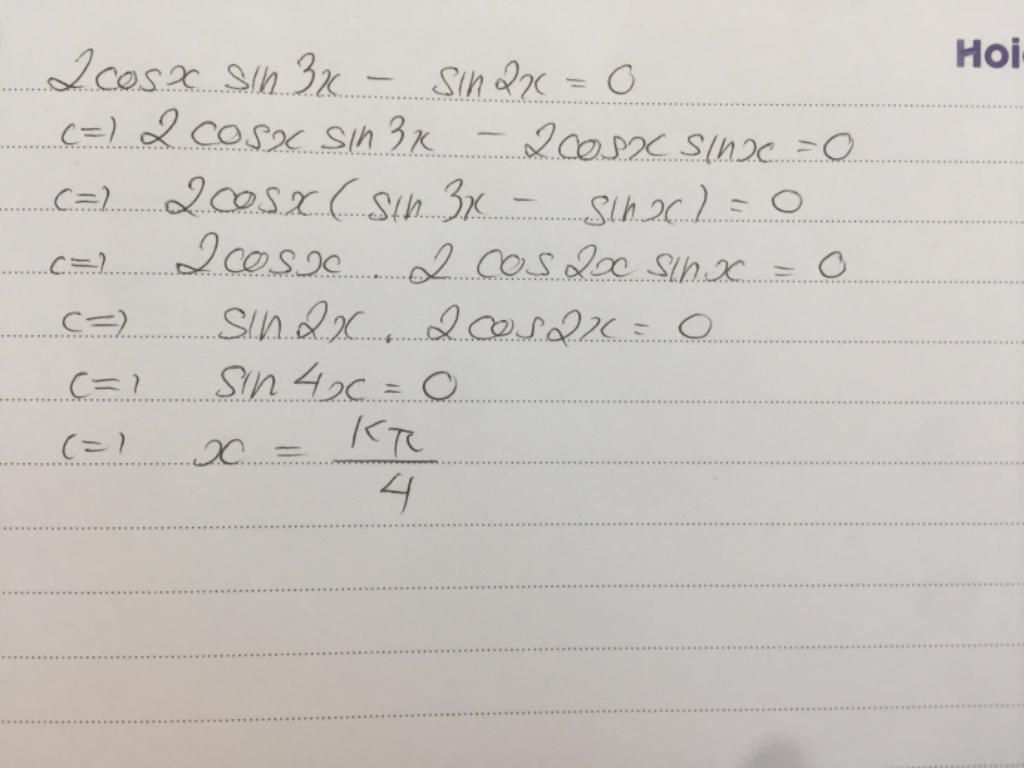 Hoi
2cosx sin 3x - sin 2x = 0
<=> 2 cosx sin 3x - 2cosx sinx = 0
<=> 2cosx ( sin 3x - sinx ) = 0
<=> 2cosx . 2 cos 2x sinx = 0
<=> sin 2x . 2 cos 2x = 0
<=> sin 4x = 0
<=> x = kπ/4